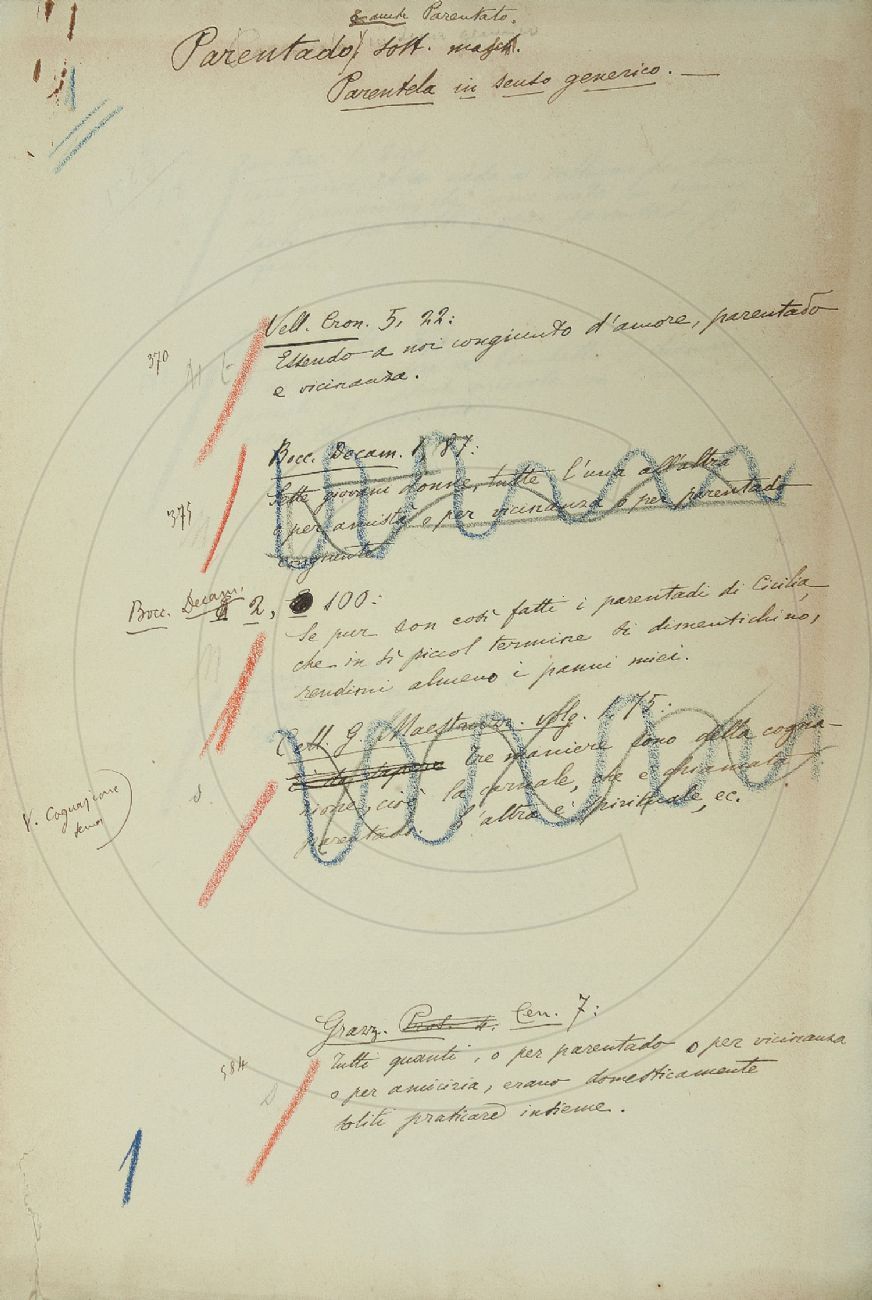 Parentato.
Parentado sost. masch.
Parentela in senso generico. —
Vell. Cron. 5, 22:
Essendo a noi congiunto d'amore, parentado
e vicinanza.
370
Bocc. Decam. 1, 87:
Sette giovani donne, tutte l'una all'altra
o per amistà o per vicinanza o per parentado
congiunte
375
Bocc. Decam. 2, 100:
Se pur son così fatti i parentadi di Cicilia,
che in sì piccol termine si dimentichino,
rendimi almeno i panni miei.
Maestruzz. volg. 1, 75:
tre maniere sono della cogna-
zione, cioè la carnale, che è chiamata
parentado. L'altra è spirituale, ec.
V. Cognazione
Grazz. Cen. 7:
Tutti quanti, o per parentado o per vicinanza
o per amicizia, erano domesticamente
soliti praticare insieme.
584
1